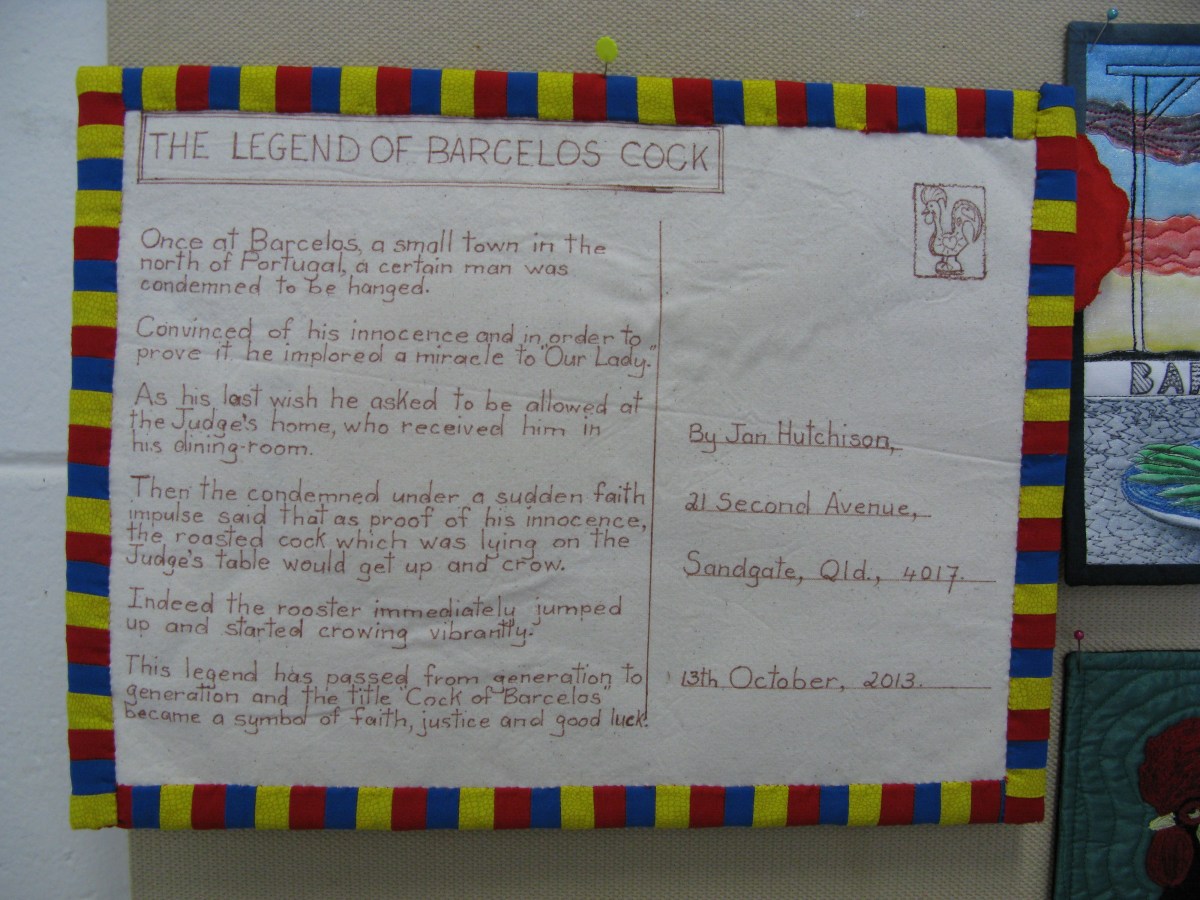 THE LEGEND OF BARCELOS COCK
Once at Barcelos, a small town in the
north of Portugal, a certain man was
condemned to be hanged.
Convinced of his innocence and in order to
prove it he implored a miracle to "Our Lady."
As his last wish he asked to be allowed at
the Judge's home, who received him in
his dining-room.
Then the condemned under a sudden faith
impulse said that as proof of his innocence,
the roasted cock which was lying on the
Judge's table would get up and crow.
Indeed the rooster immediately jumped
up and started crowing vibrantly.
This legend has passed from generation to
generation and the title "Cock of Barcelos"
became a symbol of faith, justice and good luck.
By Jan Hutchison,
21 Second Avenue,
Sandgate, Qld., 4017.
13th October, 2013.
BAR